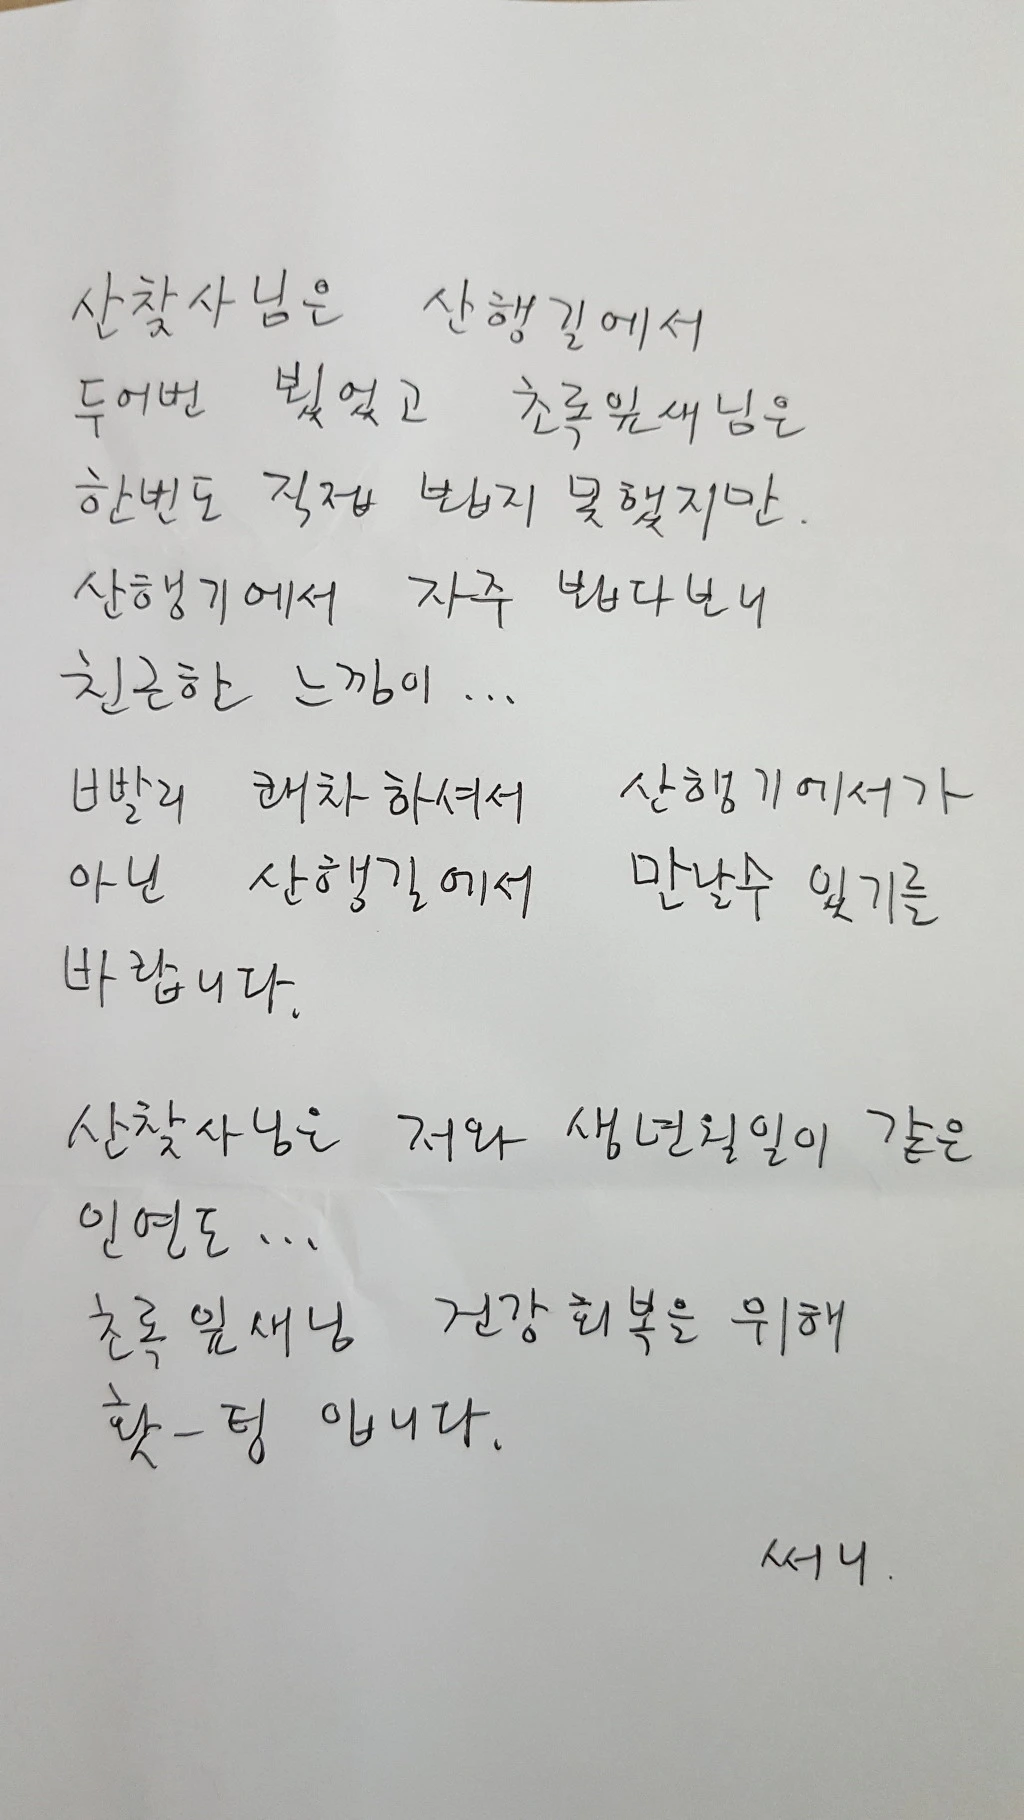 산찾사님은 산행길에서
두어번 뵜었고 초록잎새님은
한번도 직접 뵙지 못했지만.
산행기에서 자주 뵙다보니
친근한 느낌이 ...
빨리 쾌차하셔서 산행기에서가
아닌 산행길에서 만날수 있기를
바랍니다.
산찾사님은 저와 생년월일이 같은
인연도 ...
초록잎새님 건강회복을 위해
홧-팅 입니다.
써니.